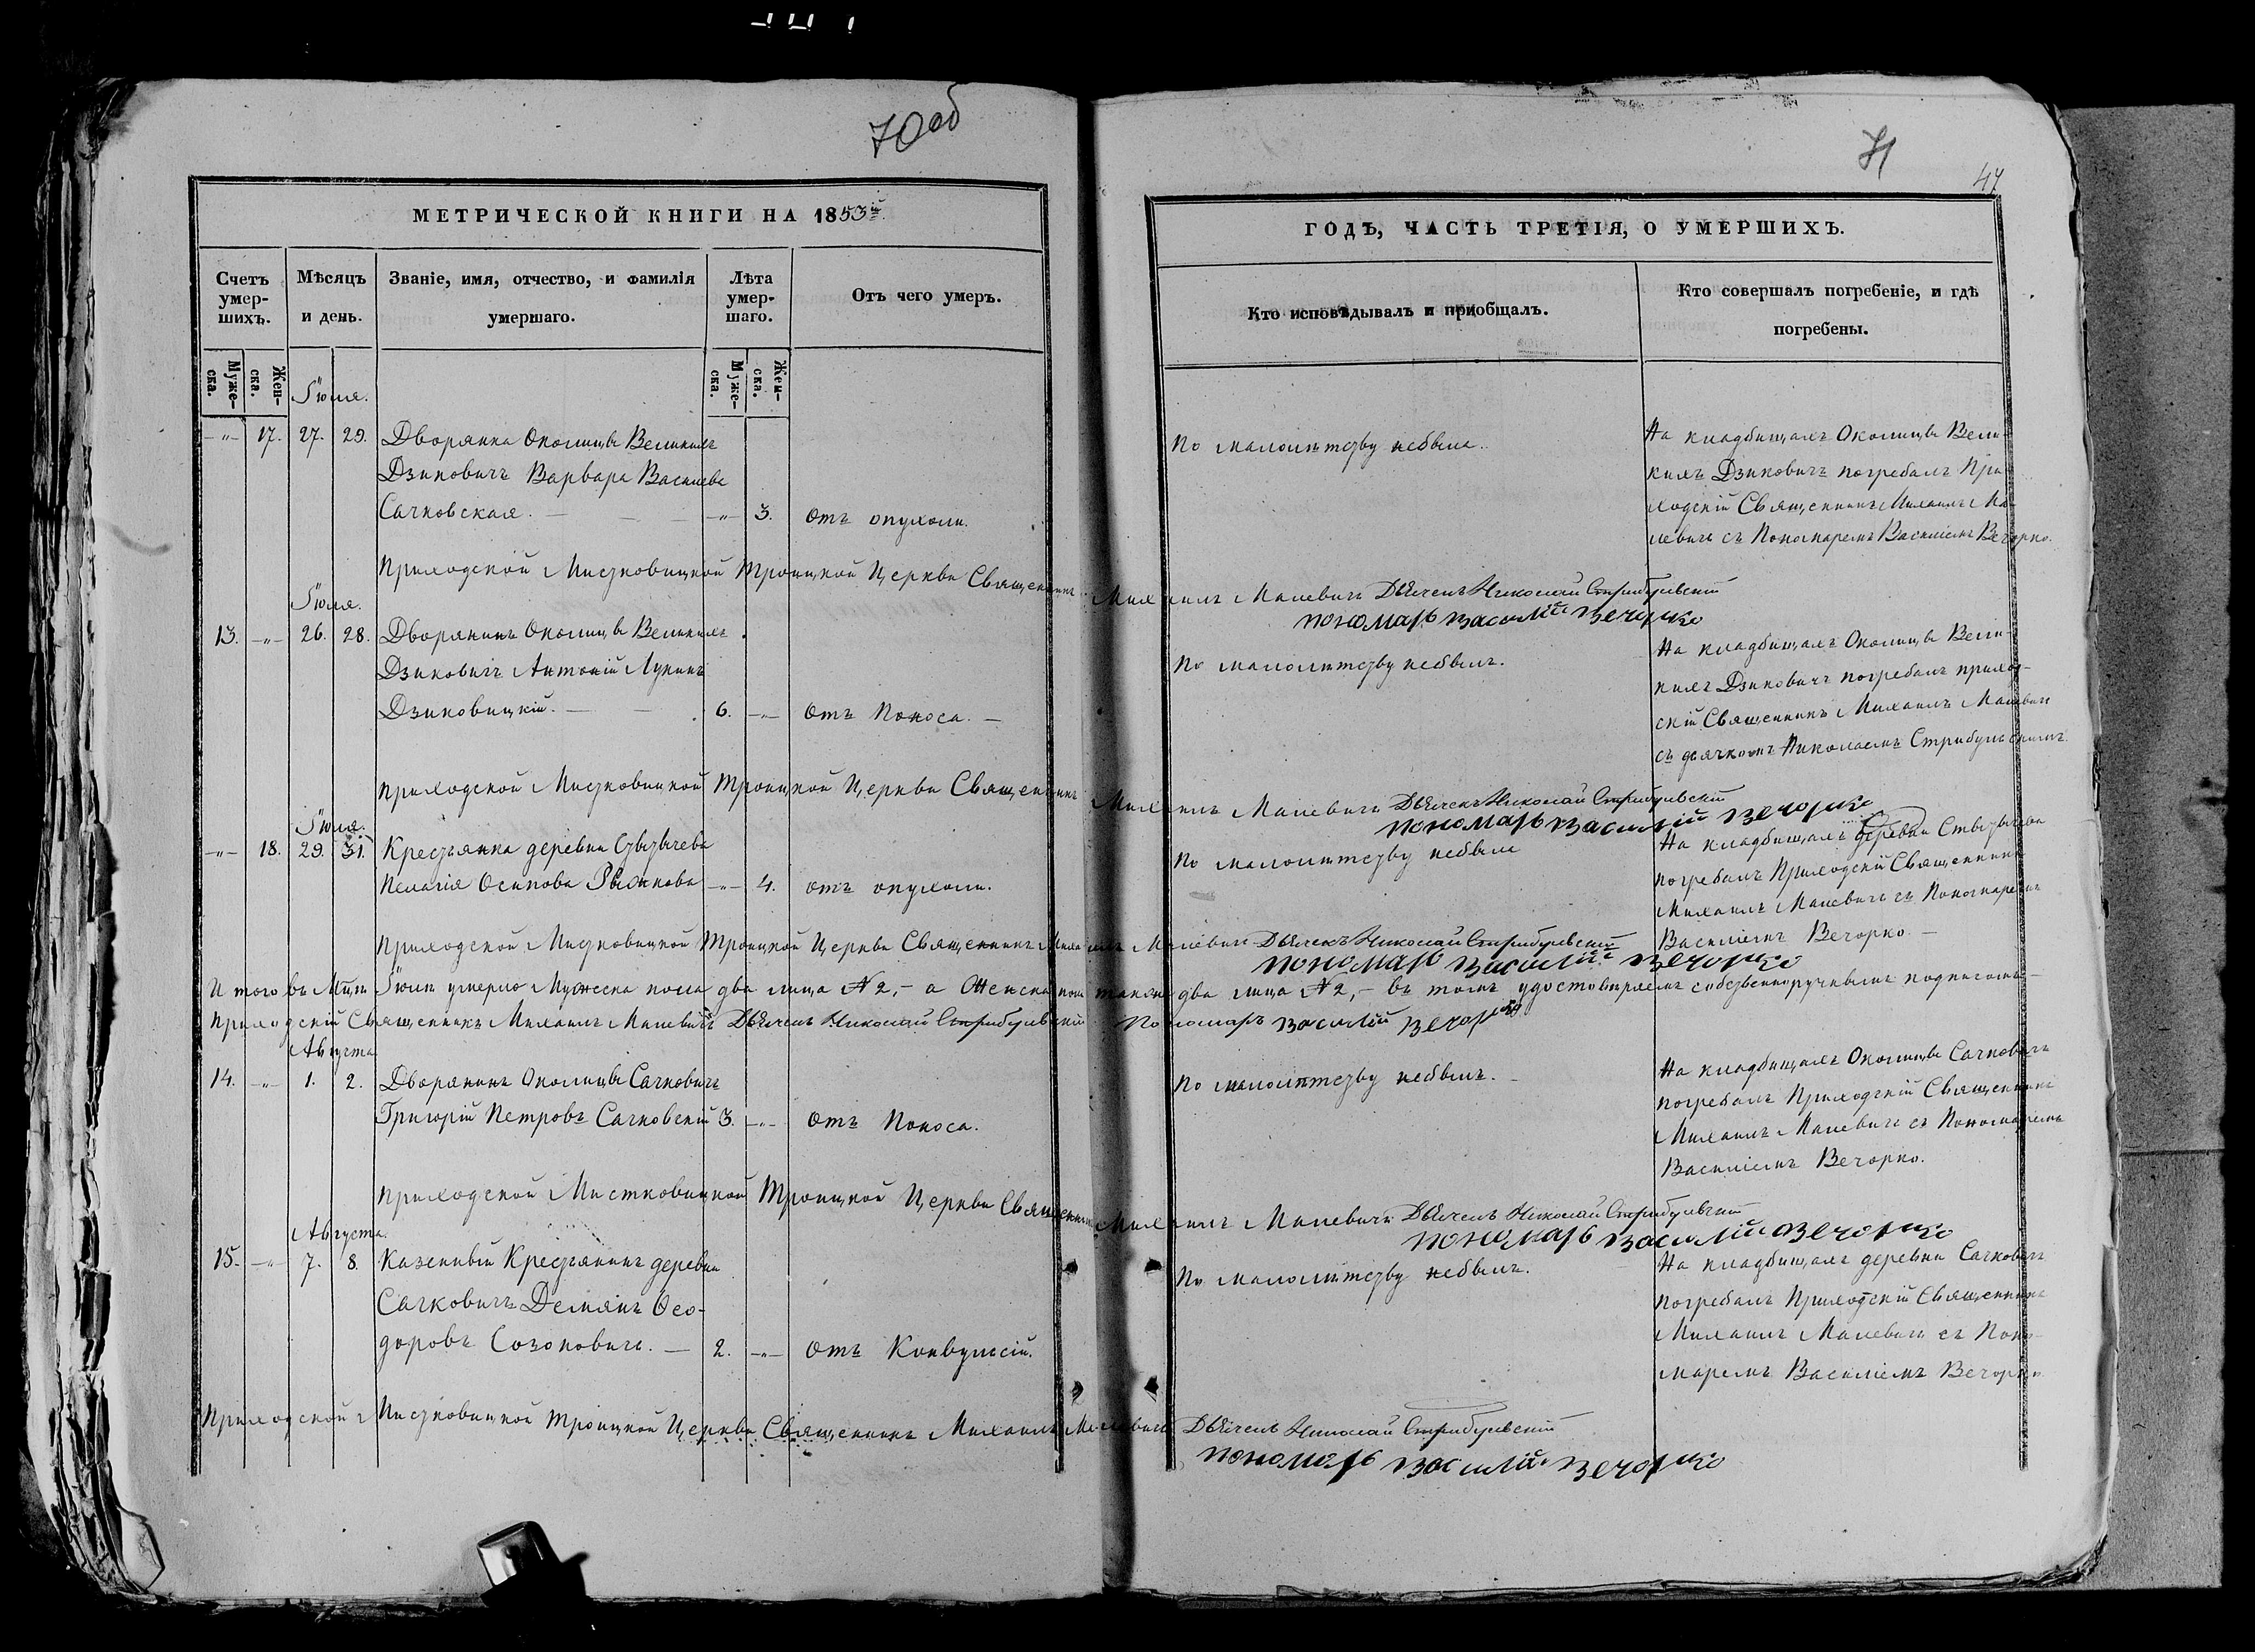 70 об
71
47
МЕТРИЧЕСКОЙ КНИГИ НА 1853й
Счетъ умер-шихъ.
Мѣсяцъ и день.
Званіе, имя, отчество, и фамилія умершаго.
Лѣта умер-шаго.
Отъ чего умеръ.
Муже-ска.
Жен-ска.
Муже-ска.
Жен-ска.
ГОДЪ, ЧАСТЬ ТРЕТІЯ, О УМЕРШИХЪ.
Кто исповѣдывалъ и пріобщалъ.
Кто совершалъ погребеніе, и гдѣ погребены.
Іюля.
-"- 17. 27. 29. Дворянка Околицы Великихъ
Дзиковичъ Варвара Васильева
Сачковская. — -"- 3. отъ опухоли.
По малолѣтству небыла.
На кладбищахъ Околицы Вели-
кихъ Дзиковичъ погребалъ При-
ходскій Священникъ Михаилъ Ма-
левичъ съ Пономаремъ Василіемъ Вечорко.
Приходской Мистковицкой Троицкой Церкви Священникъ Михаилъ Малевичъ Дьячекъ Николай Стрибульскій
пономарь василій вечорко
Іюля.
13. -"- 26. 28. Дворянинъ Околицы Великихъ
Дзиковичъ Антоній Лукинъ
Дзиковицкій. — 6. -"- Отъ Поноса. —
По малолѣтству небылъ.
На кладбищахъ Околицы Вели-
кихъ Дзиковичъ погребалъ приход-
скій Священникъ Михаилъ Малевичъ
съ дьячкомъ Николаемъ Стрибульскимъ.
приходской Мистковицкой Троицкой Церкви Священникъ Михаилъ Малевичъ Дьячекъ Николай Стрибульскій
пономарь василій вечорко
Іюля.
-"- 18. 29. 31. Крестьянка деревни Ствызычева
Пелагія Осипова -"- 4. отъ опухоли.
По малолѣтству небыла
На кладбищахъ деревни Ствызычева
погребалъ Приходскій Священникъ
Михаилъ Малевичъ съ Пономаремъ
Василіемъ Вечорко —
приходской Мистковицкой Троицкой Церкви Священникъ Михаилъ Малевичъ Дьячекъ Николай Стрибульскій
пономарь василій вечорко
И того въ Мцѣ Іюлѣ умерло Мужеска пола два лица №2,- а Женска пола также два лица №2,- въ томъ удостовѣряемъ собственноручнымъ подписомъ-
Приходскій Священникъ Михаилъ Малевичъ Дьячекъ Николай Стрибульскій Пономарь василій вечорко
Августа
14. -"- 1. 2. Дворянинъ Околицы Сачковичъ
Григорій Петровъ Сачковскій 3. -"- Отъ Поноса.
По малолѣтству небылъ. -
На кладбищахъ Околицы Сачковичъ
погребалъ Приходскій Священникъ
Михаилъ Малевичъ съ Пономаремъ
Василіемъ Вечорко.
приходской Мистковицкой Троицкой Церкви Священникъ Михаилъ Малевичъ Дьячекъ Николай Стрибульскій
пономарь василій вечорко
Августа.
15. -"- 7. 8. Казенный Крестьянинъ деревни
Сачковичъ Демянъ Ѳео-
доровъ Созоновичъ. — 2. -"- Отъ Конвульсій.
По малолѣтству небылъ.
На кладбищахъ деревни Сачковичъ
погребалъ Приходскій Священникъ
Михаилъ Малевичъ съ Поно-
маремъ Василіемъ Вечорко
Приходской Мистковицкой Троицкой Церкви Священникъ Михаилъ Малевичъ Дьячекъ Николай Стрибульскій
пономарь василій вечорко